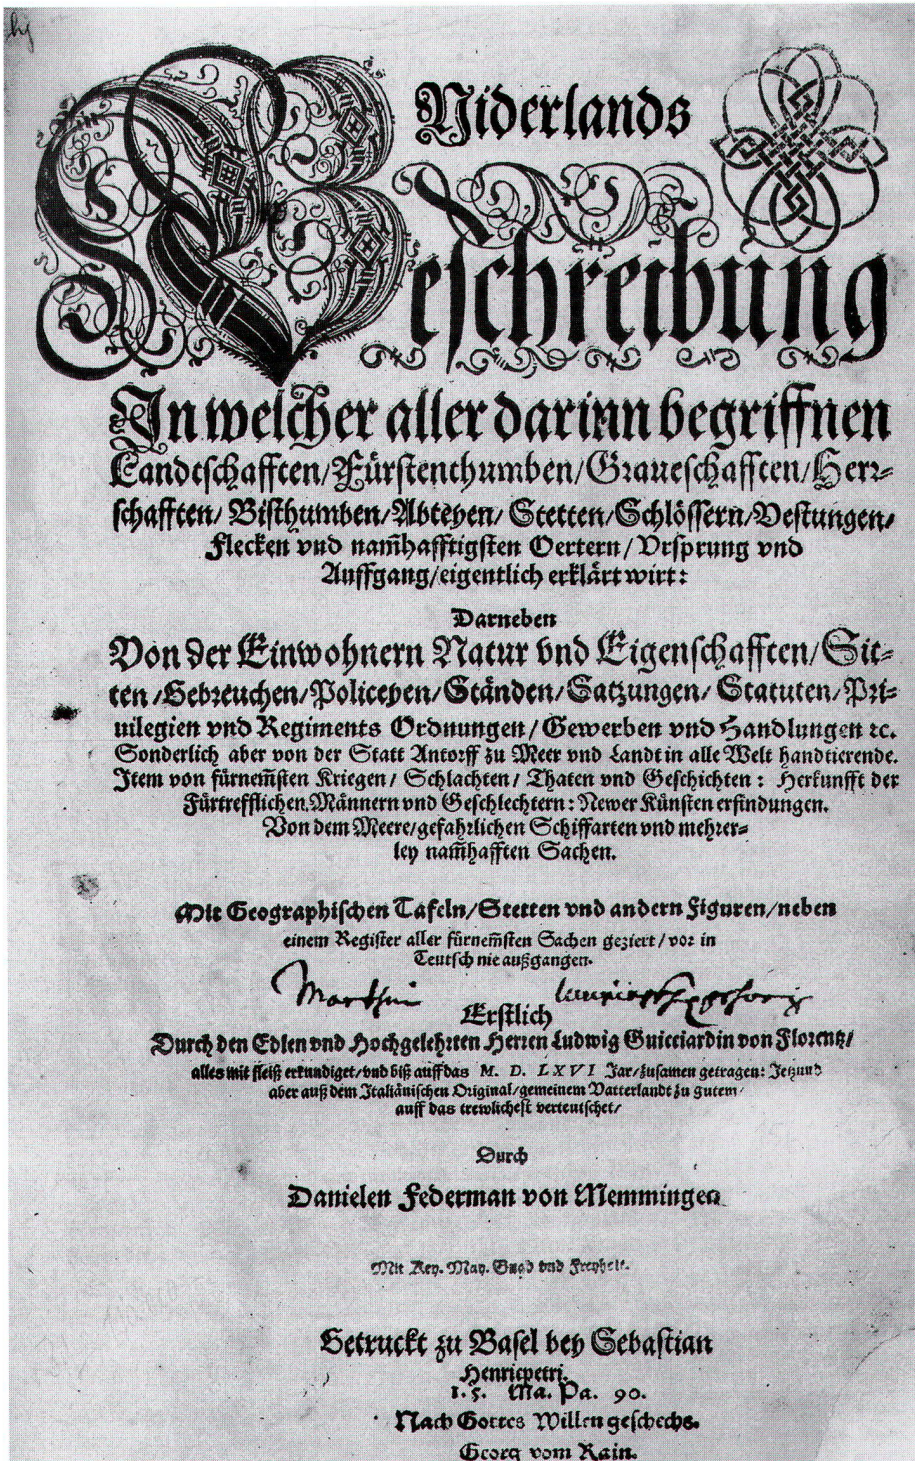 Niderlands
Beschreibung
In welcher aller darinn begriffnen
Landtschafften/Fürstenthumben/Graueschafften/Herr-
schafften/Bisthumben/Abteyen/Stetten/Schlössern/Vestungen/
Flecken vnd nam̃hafftigsten Oertern/Vrsprung vnd
Auffgang/eigentlich erklärt wirt:
Darneben
Von der Einwohnern Natur vnd Eigenschafften/Sit-
ten/Gebreuchen/Policeyen/Ständen/Satzungen/Statuten/Pri-
uilegien vnd Regiments Ordnungen/Gewerben vnd Handlungen ꝛc.
Sonderlich aber von der Statt Antorff zu Meer vnd Landt in alle Welt handtierende.
Item von fürnem̃sten Kriegen/Schlachten/Thaten vnd Geschichten: Herkunfft der
Fürtrefflichen Männern vnd Geschlechtern: Newer Künsten erfindungen.
Von dem Meere/gefahrlichen Schiffarten vnd mehrer-
ley nam̃hafften Sachen.
Mit Geographischen Tafeln/Stetten vnd andern Figuren/neben
einem Register aller fürnem̃sten Sachen geziert/vor in
Teutsch nie außgangen.
Martini
Erstlich
Durch den Edlen vnd Hochgelehrten Herren Ludwig Guicciardin von Florentz/
alles mit fleiß erkundiget/vnd biß auff das M. D. LXVI Jar/zusamen getragen: Jetzund
aber auß dem Italiänischen Original/gemeinem Vatterlandt zu gutem/
auff das trewlichest verteutschet/
Durch
Danielen Federman von Memmingen
Mit Key. May. Gnad vnd Freyheit.
Getruckt zu Basel bey Sebastian
Henricpetri.
1.5. Ma. Pa. 90.
Nach Gottes Willen geschechs.
Georg vom Rain.